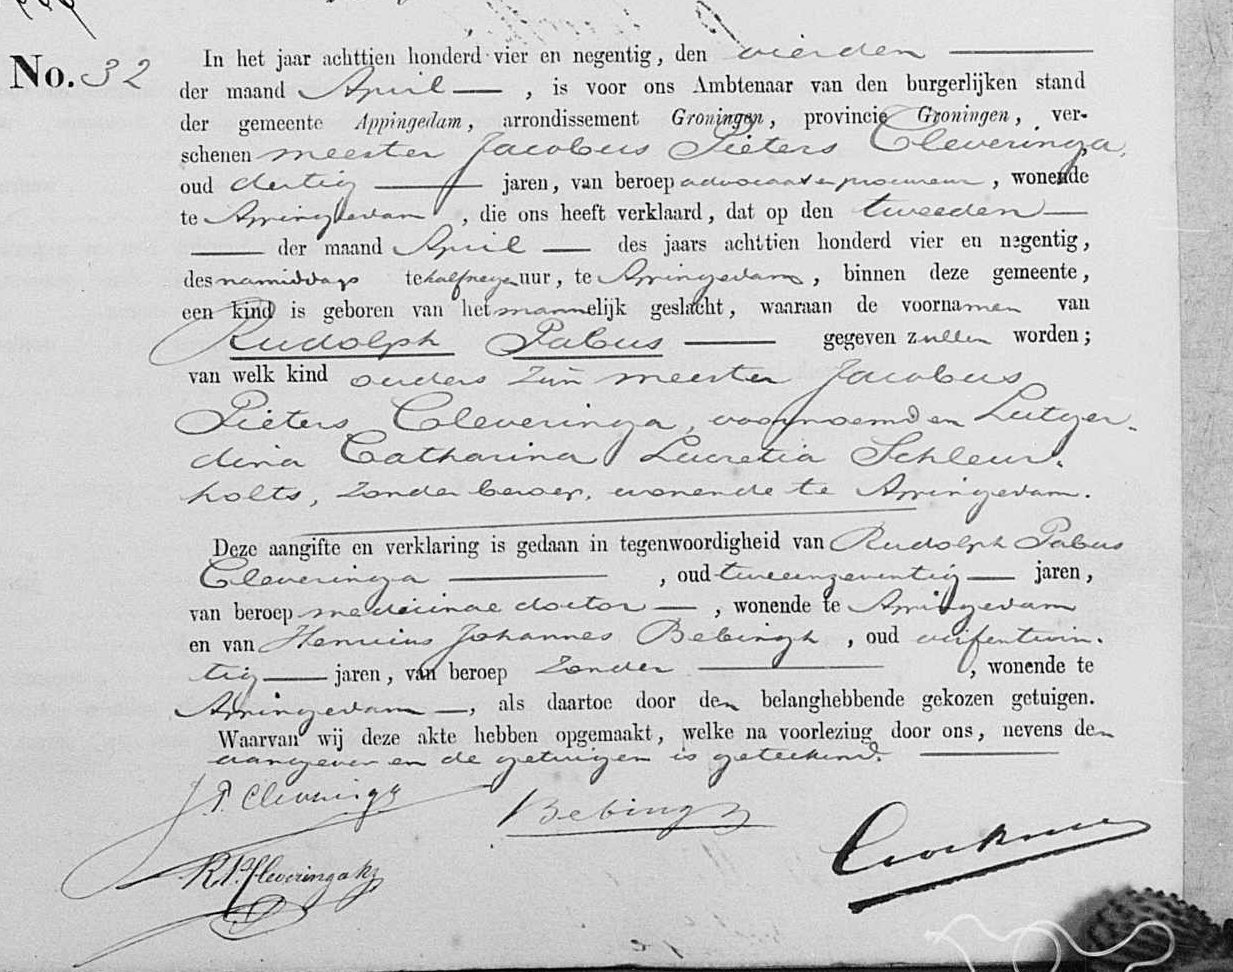 No. 32
In het jaar achttien honderd vier en negentig, den vierden
der maand April, is voor ons Ambtenaar van den burgerlijken stand
der gemeente Appingedam, arrondissement Groningen, provincie Groningen, ver-
schenen meester Jacobus Pieters Cleveringa,
oud dertig jaren, van beroep advocaat en procureur, wonende
te Appingedam, die ons heeft verklaard, dat op den tweeden
der maand April des jaars achttien honderd vier en negentig,
des namiddags te half negen uur, te Appingedam, binnen deze gemeente,
een kind is geboren van het mannelijk geslacht, waaraan de voornamen van
Rudolph Pabus gegeven zullen worden;
van welk kind ouders zijn meester Jacobus
Pieters Cleveringa, voornoemd en Lutger-
dina Catharina Lucretia Schleur-
holts, zonder beroep, wonende te Appingedam.
Deze aangifte en verklaring is gedaan in tegenwoordigheid van Rudolph Pabus
Cleveringa, oud tweeenzeventig jaren,
van beroep medicinae doctor, wonende te Appingedam
en van Henricus Johannes Bebingh, oud vijfentwin-
tig jaren, van beroep zonder, wonende te
Appingedam, als daartoe door den belanghebbende gekozen getuigen.
Waarvan wij deze akte hebben opgemaakt, welke na voorlezing door ons, nevens den
aangever en de getuigen is geteekend.
J. P. Cleveringa
Bebingh
R. P. Cleveringa